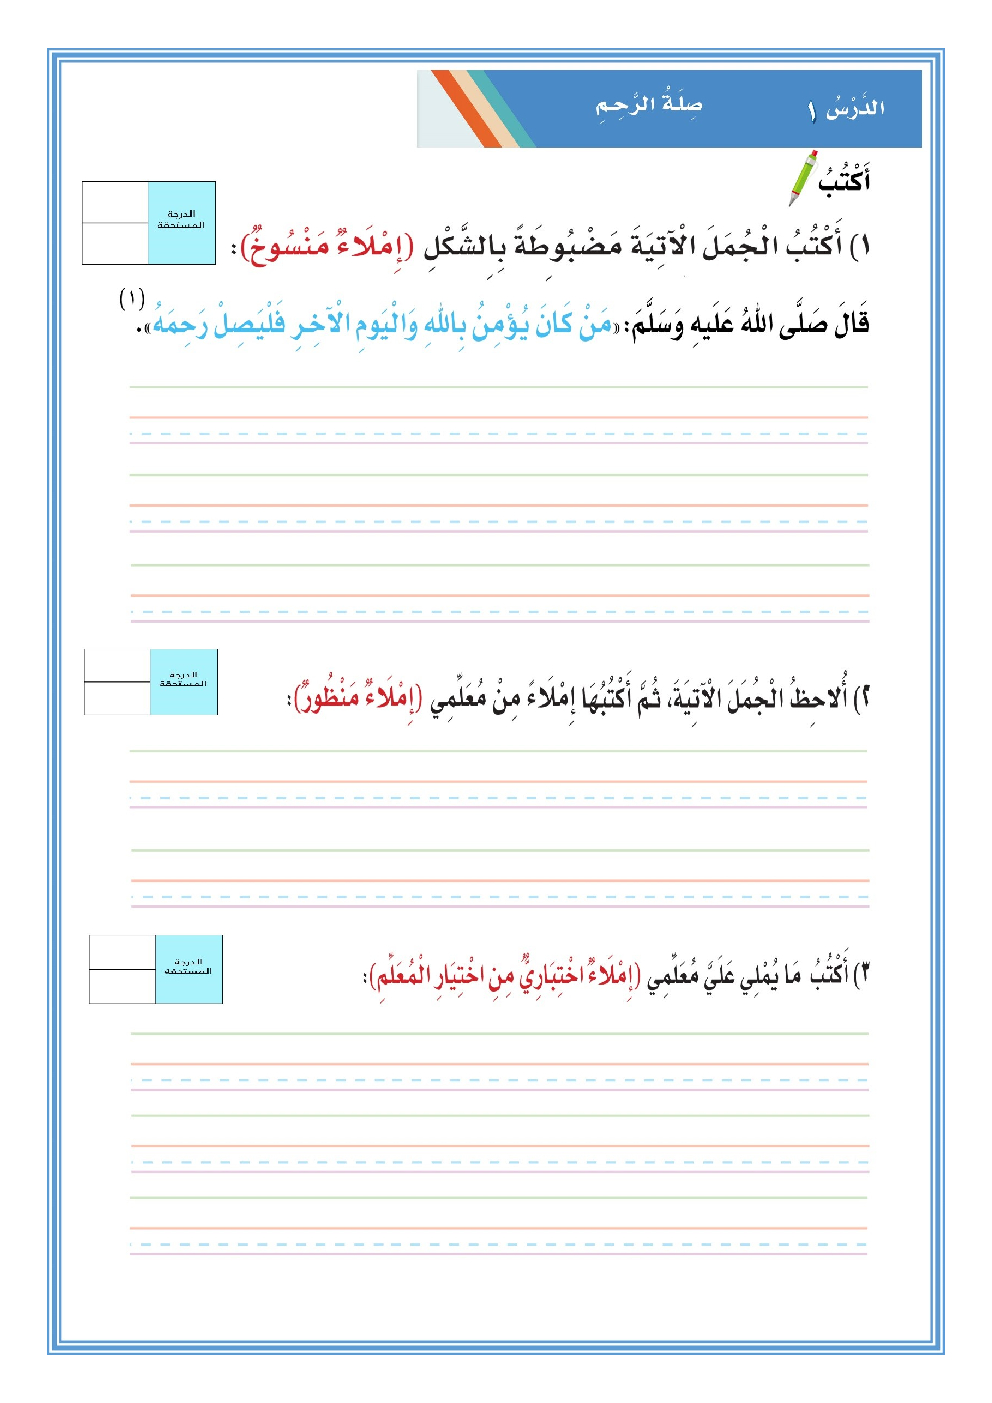 الدَّرْسُ ١ صِلَةُ الرَّحِمِ
أَكْتُبُ
الدرجة
المستحقة
١) أَكْتُبُ الْجُمَلَ الْآتِيَةَ مَضْبُوطَةً بِالشَّكْلِ (إِمْلَاءٌ مَنْسُوخٌ):
قَالَ صَلَّى اللهُ عَلَيهِ وَسَلَّمَ: «مَنْ كَانَ يُؤْمِنُ بِاللهِ وَالْيَومِ الْآخِرِ فَلْيَصِلْ رَحِمَهُ».(١)
الدرجة
المستحقة
٢) أُلاحِظُ الْجُمَلَ الْآتِيَةَ، ثُمَّ أَكْتُبُهَا إِمْلَاءً مِنْ مُعَلِّمِي (إِمْلَاءٌ مَنْظُورٌ):
الدرجة
المستحقة
٣) أَكْتُبُ مَا يُمْلِي عَلَيَّ مُعَلِّمِي (إِمْلَاءٌ اخْتِبَارِيٌّ مِنِ اخْتِيَارِ الْمُعَلِّمِ):